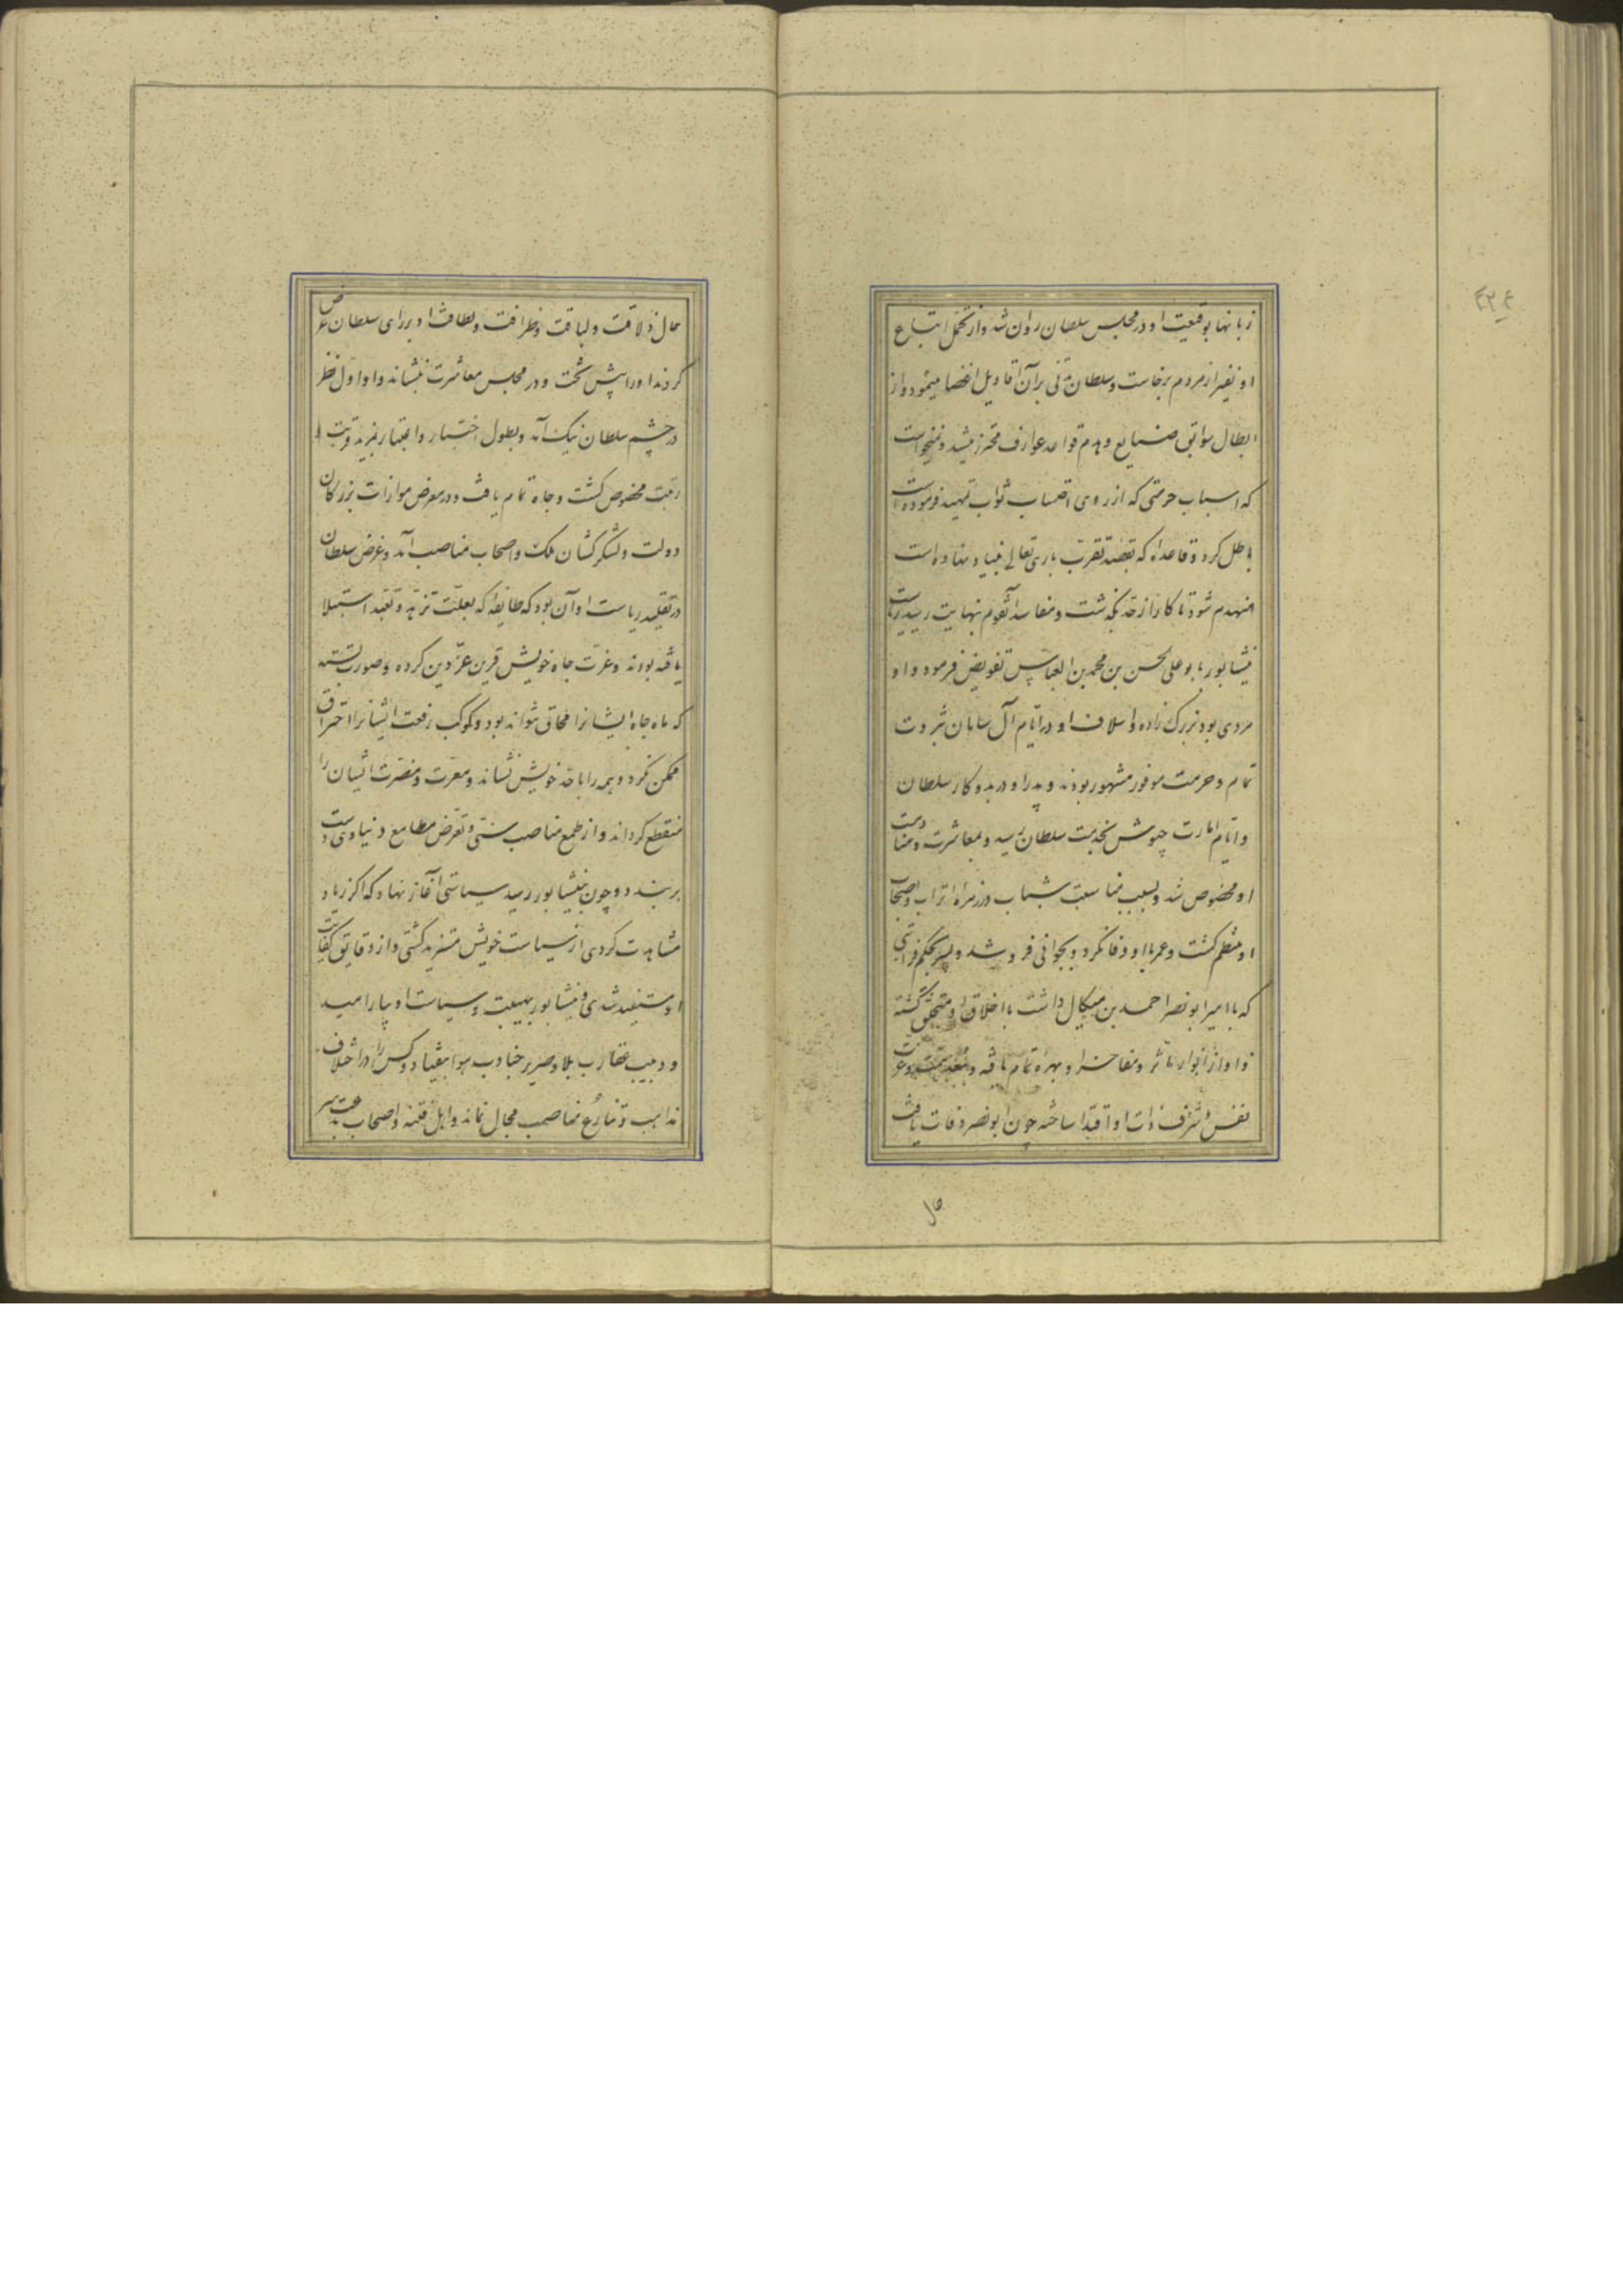 زبانها بوقیعت او در مجلس سلطان روان شد و از تحمل اتباع
او نفیر از مردم برخاست و سلطان مدتی بر آن اقاویل اغضا مینمود و از
ابطال سوابق صنایع و هدم قواعد عوارف محترز میشد و نمیخواست
که اسباب حرمتی که از روی اقتساب ثواب تمهید فرموده است
باطل کرد و قاعدۀ که بقصد تقرب باری تعالی بنیاد نهاده است
منهدم شود تا کار از حد بگذشت و مفاسد آن قوم بنهایت رسید ریاست
نیشابور بابو علی الحسن بن محمد بن العباس تفویض فرمود و او
مردی بود بزرک زاده و اسلاف او در ایام آل سامان بثروت
تمام و حرمت موفور مشهور بودند و پدر او در بدو کار سلطان
و ایام امارت جیوش بخدمت سلطان رسید و بمعاشرت و منادمت
او مخصوص شد و بسبب مناسبت شباب در زمرۀ اتراب و اصحاب
او منتظم کشت و عمر با او وفا نکرد و بجوانی فرو شد و پسر بحکم قرابتی
که با امیر ابو نصر احمد بن میکال داشت باخلاق او متخلق گشته
و او از انوار مآثر و مفاخر او بهره تمام یافته و همت و عزت
نفس و شرف ذات او اقتدا ساخته چون ابو نصر وفات یافت
حال
حال ذلاقت و لباقت و ظرافت و لطافت او بر رای سلطان عرض
کردند او را پیش تخت و در مجلس معاشرت بنشاند و او اول نظر
در چشم سلطان نیک آمد و بطول اختبار و اعتبار بمزید قربت و
رتبت مخصوص کشت و جاه تمام یافت و در معرض موازات بزرکان
دولت و لشکرکشان ملک و اصحاب مناصب آمد و غرض سلطان
در تقلید ریاست او آن بود که طایفۀ که بعلت تزهد و تعبد استیلا
یافته بودند و عزت جاه خویش قرین عز دین کرده و صورت بسته
که ماه جاه ایشانرا محاق نتواند بود و کوکب رفعت ایشانرا احتراق
ممکن نکردد همه را با حد خویش نشاند و معرت و مضرت ایشان را
منقطع کرداند و از طمع مناصب سنی و تعرض مطامع دنیاوی دست
بربندد و چون بنیشابور رسید سیاستی آغاز نهاد که اکر زیاد
مشاهدت کردی از سیاست خویش متنزه کشتی و از دقایق کفایت
او مستفید شدی و نیشابور بهیبت و سیاست او بیارامید
و دبیب عقارب بلا و صریر جنادب هوا بیفتاد و کس را در اختلاف
مذاهب و تنازع مناصب مجال نماند و اهل فتنه و اصحاب بدعت سر